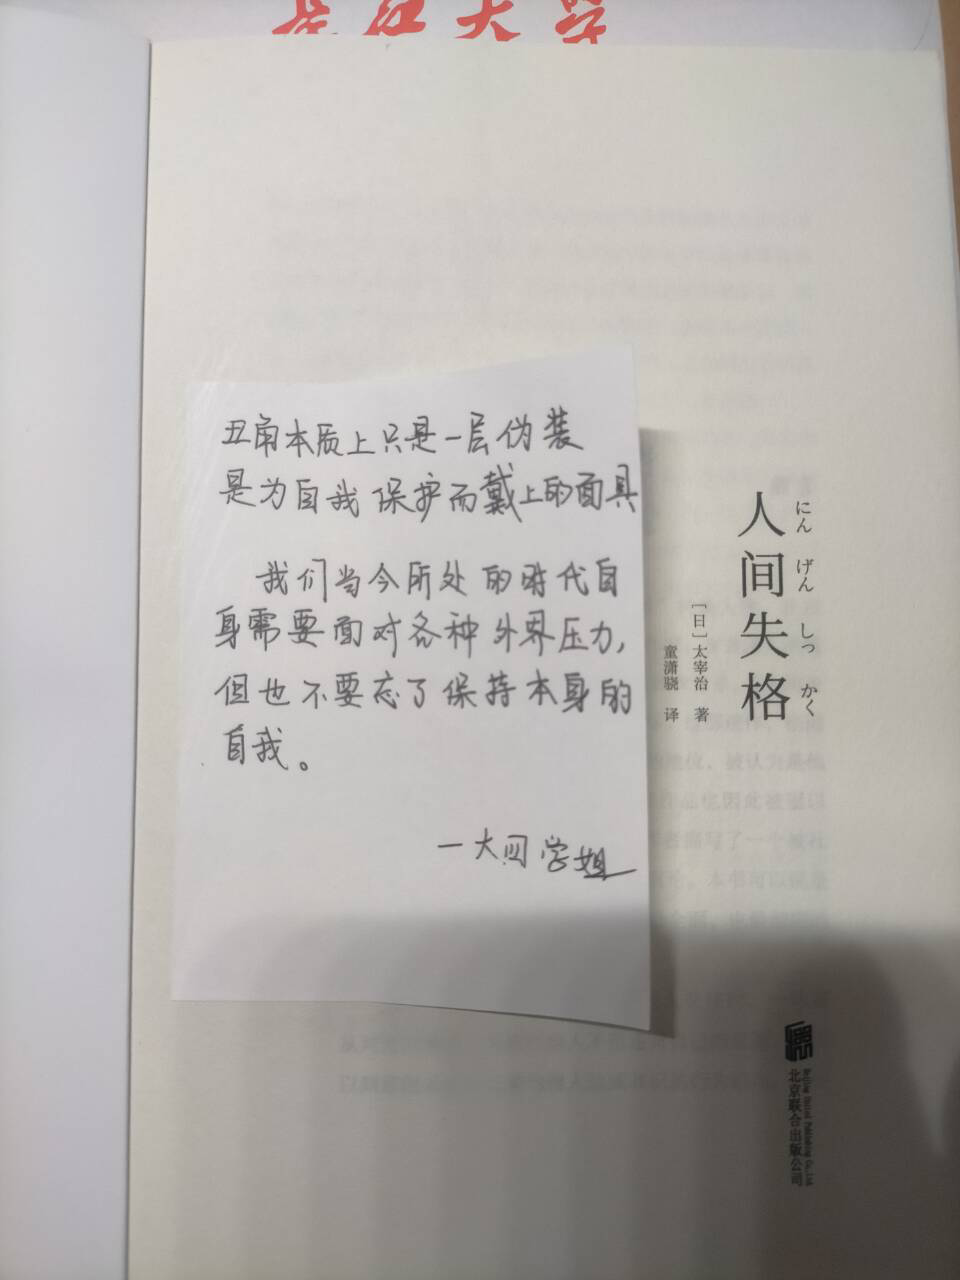 长江大学
丑角本质上只是一层伪装
是为自我保护而戴上的面具
我们当今所处的时代自
身需要面对各种外界压力,
但也不要忘了保持本身的
自我。
一大四学姐
人间失格
にん げん しっ かく
[日]太宰治 著
童潇骁 译
北京联合出版公司
Beijing United Publishing Co.,Ltd.